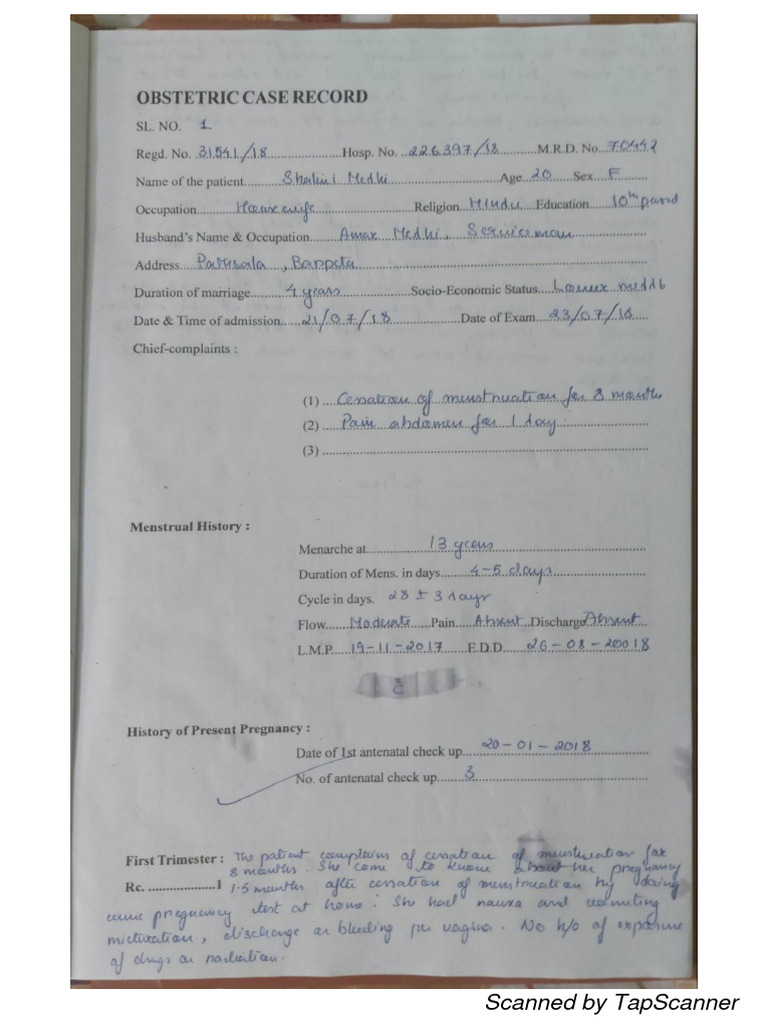 OBSTETRIC CASE RECORD
SL. NO. 1
Regd. No. 31541/18 Hosp. No. 226397/18 M.R.D. No. 70442
Name of the patient Medhi Age 20 Sex F
Occupation Housewife Religion Hindu Education 10th passed
Husband's Name & Occupation Amar Medhi, Serviceman
Address Pathsala, Barpeta
Duration of marriage 4 years Socio-Economic Status Lower middle
Date & Time of admission 21/07/18 Date of Exam 23/07/18
Chief-complaints :
(1) Cessation of menstruation for 8 months
(2) Pain abdomen for 1 day.
(3)
Menstrual History :
Menarche at 13 years
Duration of Mens. in days 4-5 days
Cycle in days. 28 ± 3 days
Flow Moderate Pain Absent Discharge Absent
L.M.P. 19-11-2017 E.D.D 26-08-20018
History of Present Pregnancy :
Date of 1st antenatal check up 20-01-2018
No. of antenatal check up 3
First Trimester : The patient complains of cessation of menstruation for
8 months. She come to know about her pregnancy
Rc. 1 1.5 months after cessation of menstruation by doing
urine pregnancy test at home. She had nausea and vomiting
micturation, discharge or bleeding per vagina. No h/o of exposure
of drugs or radiation.
Scanned by TapScanner